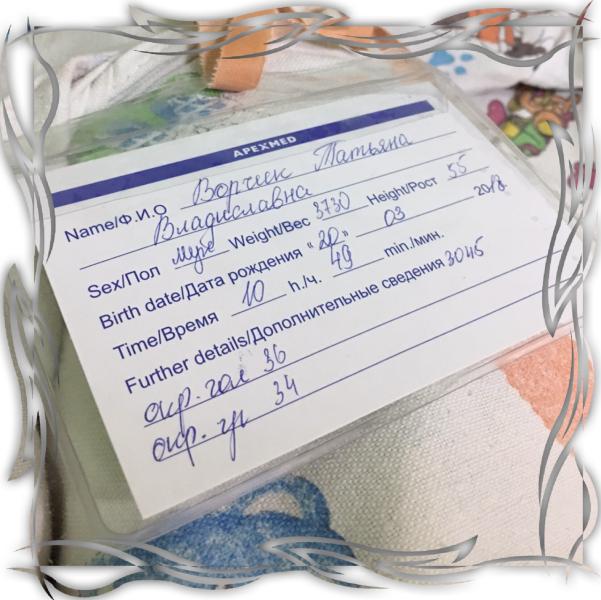 APEXMED
Name/Ф.И.О Ворчик Татьяна
Владиславна
Sex/Пол муж Weight/Вес 3730 Height/Рост 55
Birth date/Дата рождения " 20 " 03 2018
Time/Время 10 h./ч. 49 min./мин.
Further details/Дополнительные сведения 3045
окр. гол 36
окр. гр 34